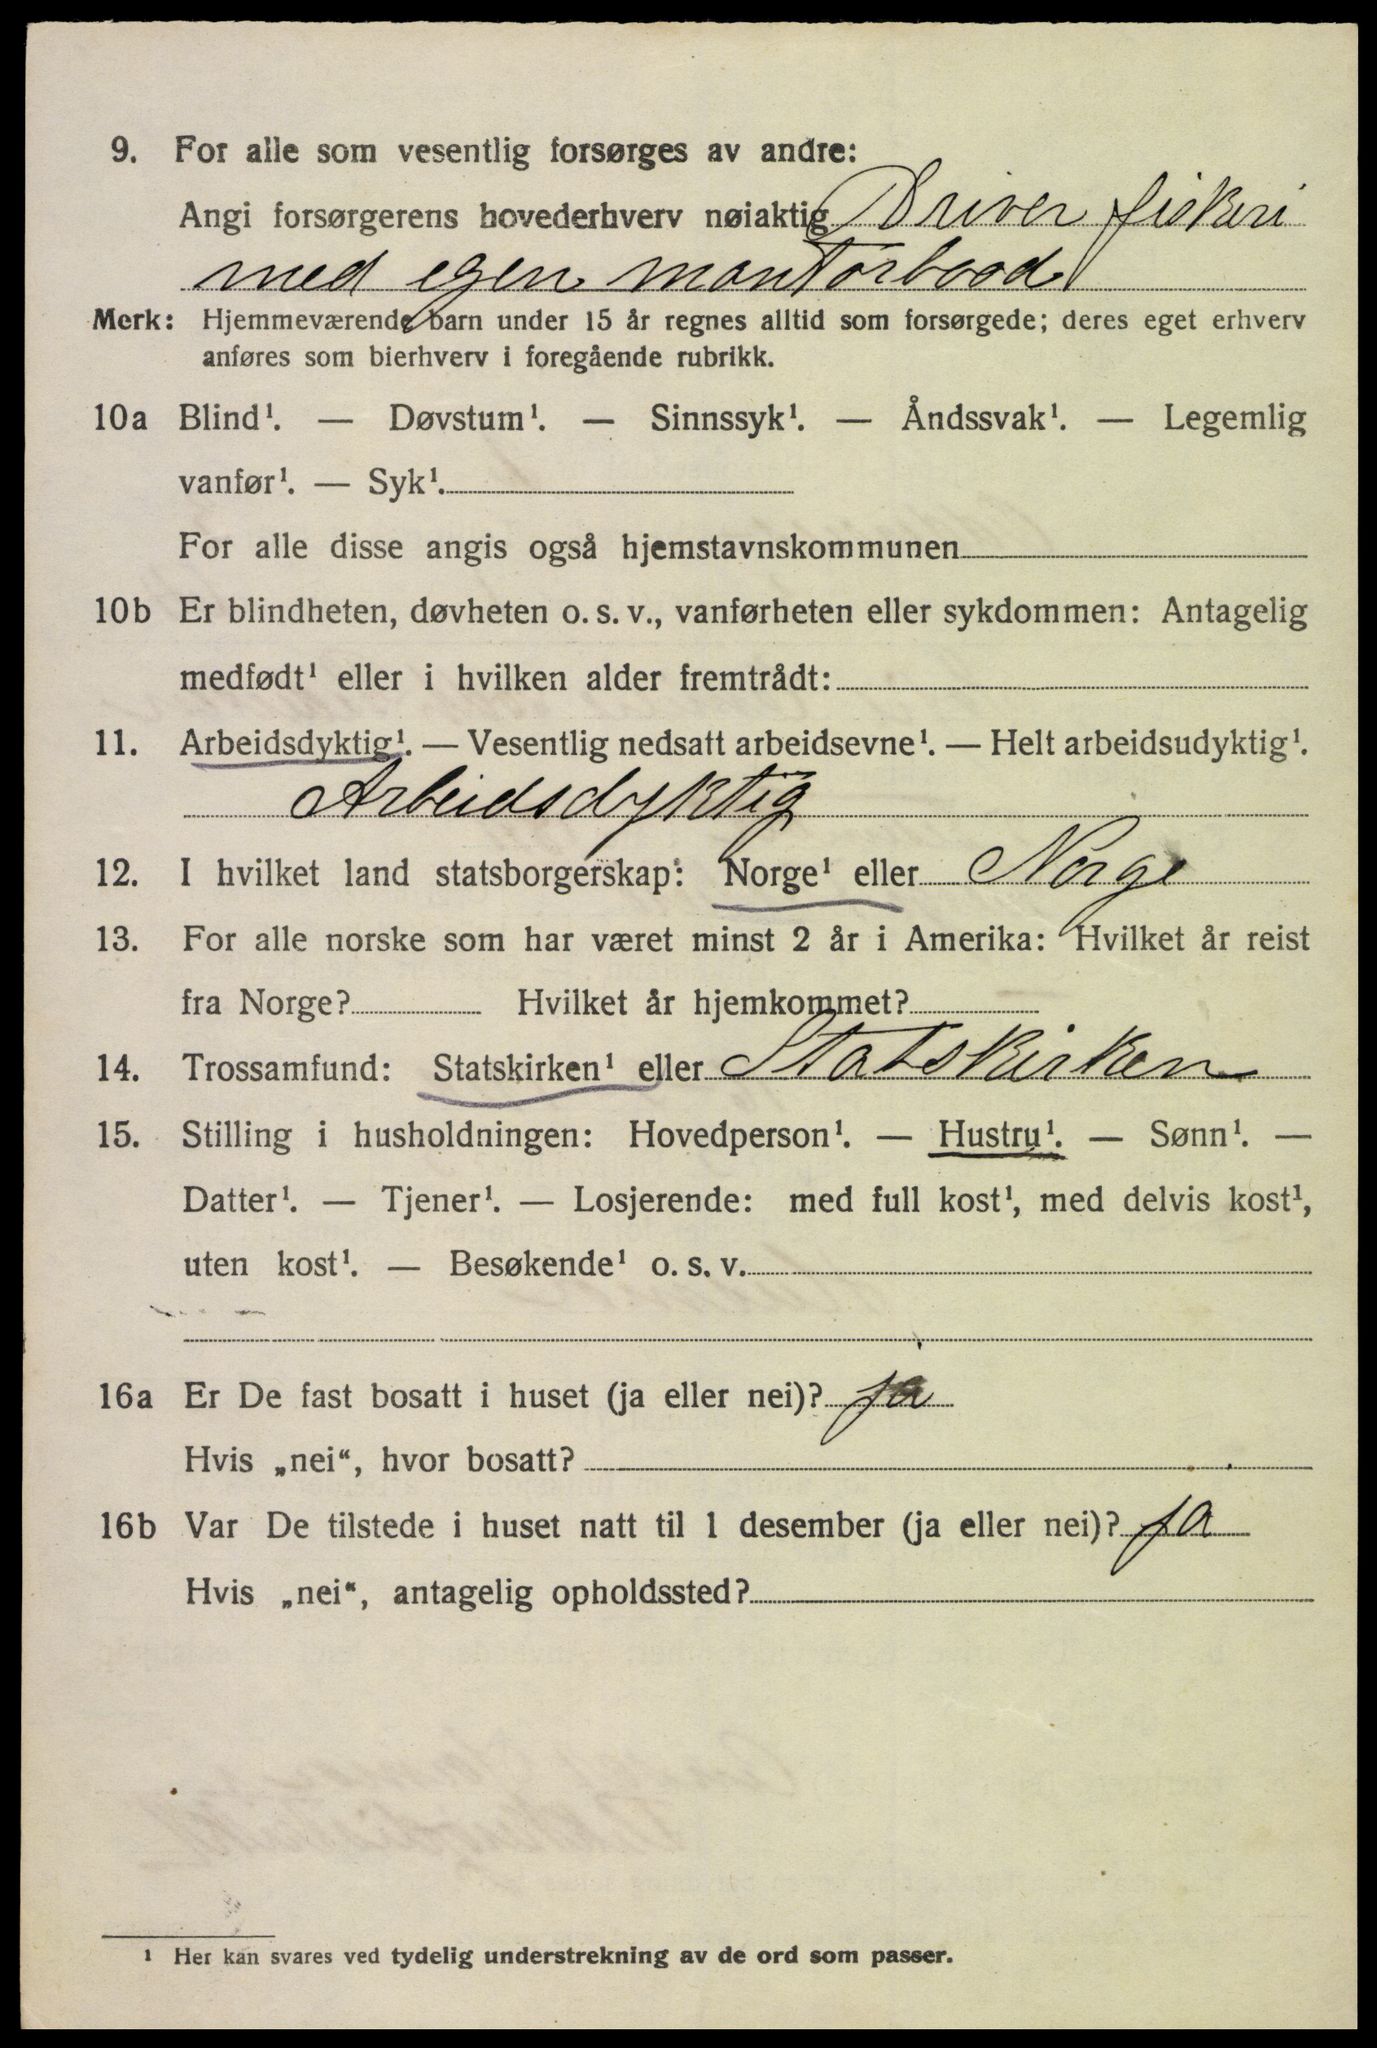 9. For alle som vesentlig forsørges av andre:
Angi forsørgerens hovederhverv nøiaktig Driver fiskeri
med egen mantorbaad
Merk: Hjemmeværende barn under 15 år regnes alltid som forsørgede; deres eget erhverv
anføres som bierhverv i foregående rubrikk.
10a Blind¹. — Døvstum¹. — Sinnssyk¹. — Åndssvak¹. — Legemlig
vanfør¹. — Syk¹.
For alle disse angis også hjemstavnskommunen
10b Er blindheten, døvheten o. s. v., vanførheten eller sykdommen: Antagelig
medfødt¹ eller i hvilken alder fremtrådt:
11. Arbeidsdyktig¹. — Vesentlig nedsatt arbeidsevne¹. — Helt arbeidsudyktig¹.
Arbeidsdyktig
12. I hvilket land statsborgerskap: Norge¹ eller Norge
13. For alle norske som har været minst 2 år i Amerika: Hvilket år reist
fra Norge? Hvilket år hjemkommet?
14. Trossamfund: Statskirken¹ eller Statskirken
15. Stilling i husholdningen: Hovedperson¹. — Hustru¹. — Sønn¹. —
Datter¹. — Tjener¹. — Losjerende: med full kost¹, med delvis kost¹,
uten kost¹. — Besøkende¹ o. s. v.
16a Er De fast bosatt i huset (ja eller nei)? ja
Hvis „nei“, hvor bosatt?
16b Var De tilstede i huset natt til 1 desember (ja eller nei)? ja
Hvis „nei“, antagelig opholdssted?
¹ Her kan svares ved tydelig understrekning av de ord som passer.